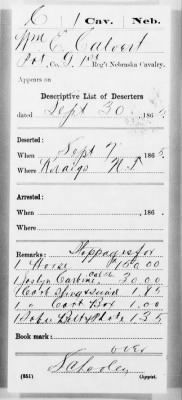 C | 1 Cav. | Neb.
Wm E. Calvert
Pvt., Co. G, 1st Reg't Nebraska Cavalry.
Appears on
Descriptive List of Deserters
dated Sept 30, 186
Deserted:
When Sept 7, 1865.
Where N.T
Arrested:
When , 186 .
Where
Remarks: Stoppages for
1 Horse 150.00
1 Joslyn Carbine 30.00
1 1.85
1 " Box 1.00
1 Sabre Belt & Plate 1.35
Book mark:
over
(551) Copyist.